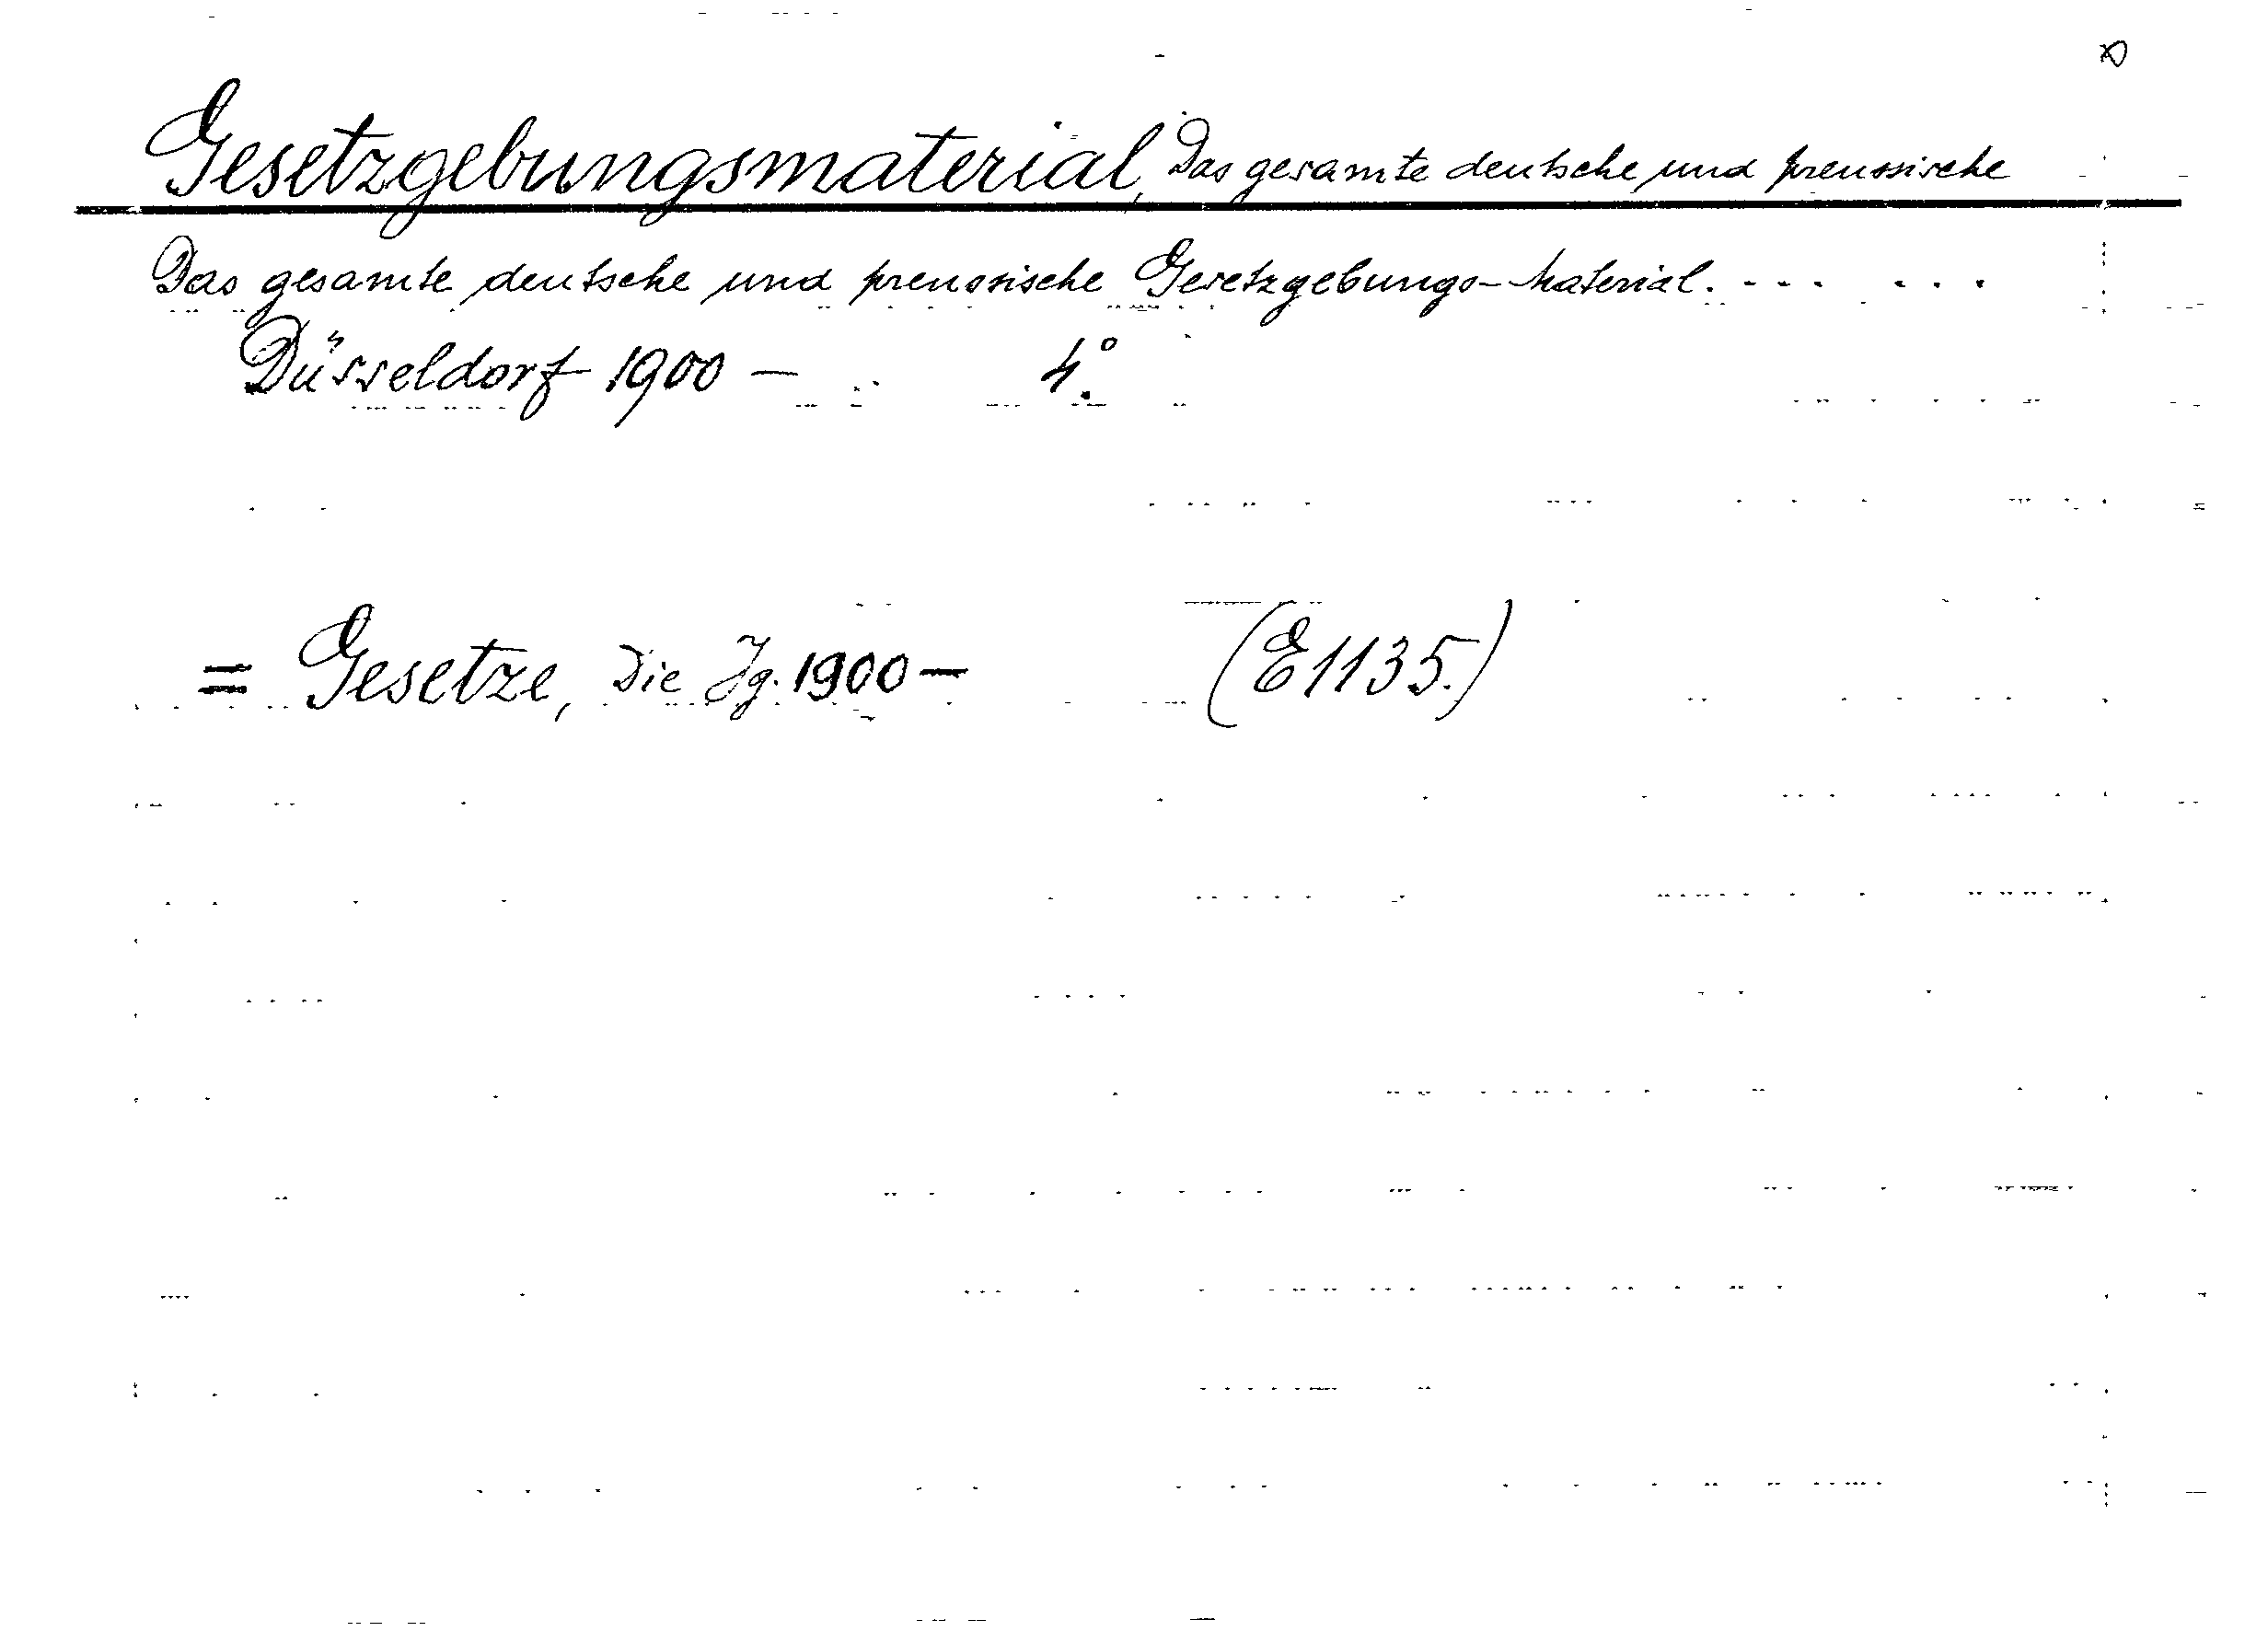 Gesetzgebungsmaterial, Das gesamte deutsche und preussische
Das gesamte deutsche und preussische Gesetzgebungs-Material. . . . . . .
Düsseldorf 1900 — 4°.
= Gesetze, Die Jg. 1900 — (E 1135.)